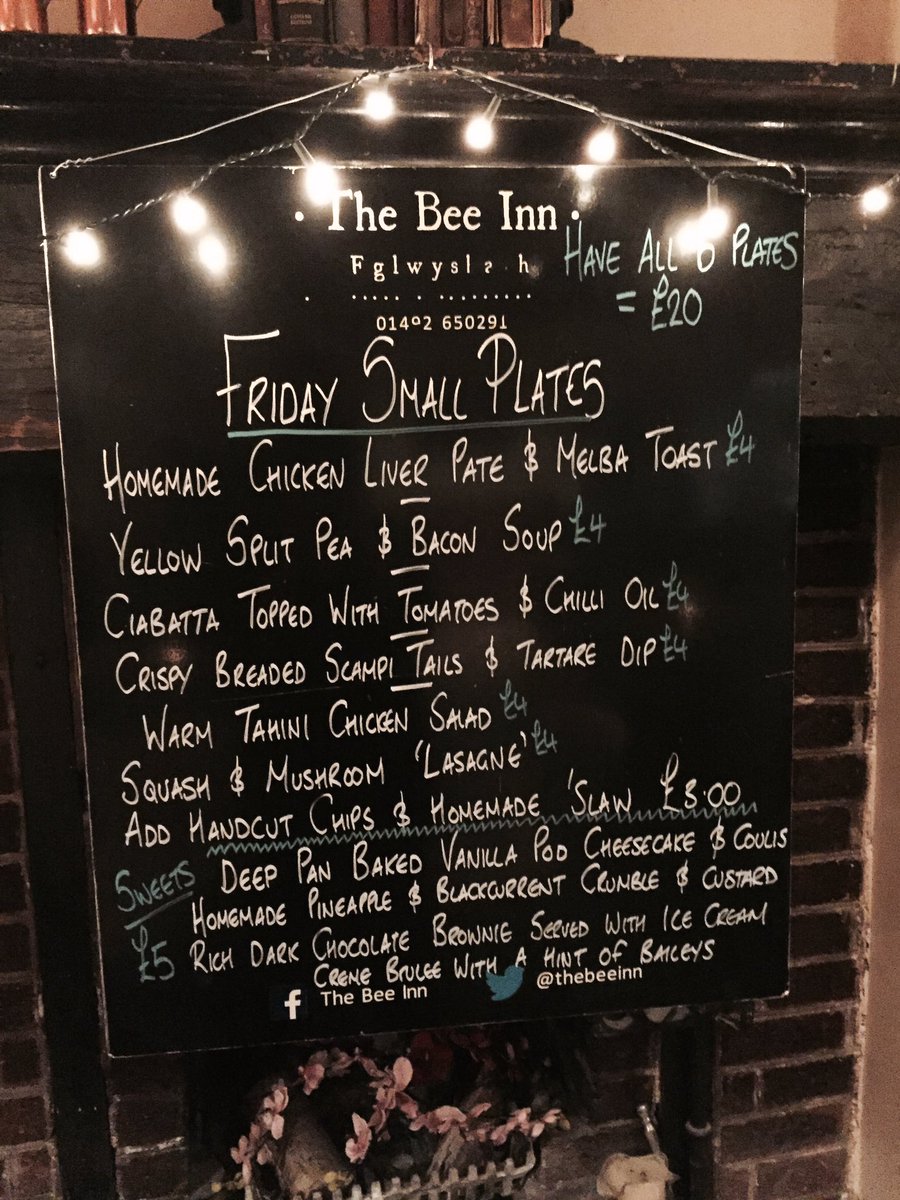 · The Bee Inn ·
HAVE ALL 6 PLATES
= £20
FRIDAY SMALL PLATES
HOMEMADE CHICKEN LIVER PATE & MELBA TOAST £4
YELLOW SPLIT PEA & BACON SOUP £4
CIABATTA TOPPED WITH TOMATOES & CHILLI OIL £4
CRISPY BREADED SCAMPI TAILS & TARTARE DIP £4
WARM TAHINI CHICKEN SALAD £4
SQUASH & MUSHROOM 'LASAGNE' £4
ADD HANDCUT CHIPS & HOMEMADE 'SLAW £3.00
SWEETS DEEP PAN BAKED VANILLA POD CHEESECAKE & COULIS
HOMEMADE PINEAPPLE & BLACKCURRENT CRUMBLE & CUSTARD
£5 RICH DARK CHOCOLATE BROWNIE SERVED WITH ICE CREAM
CREME BRULEE WITH A HINT OF BAILEYS
f The Bee Inn @thebeeinn